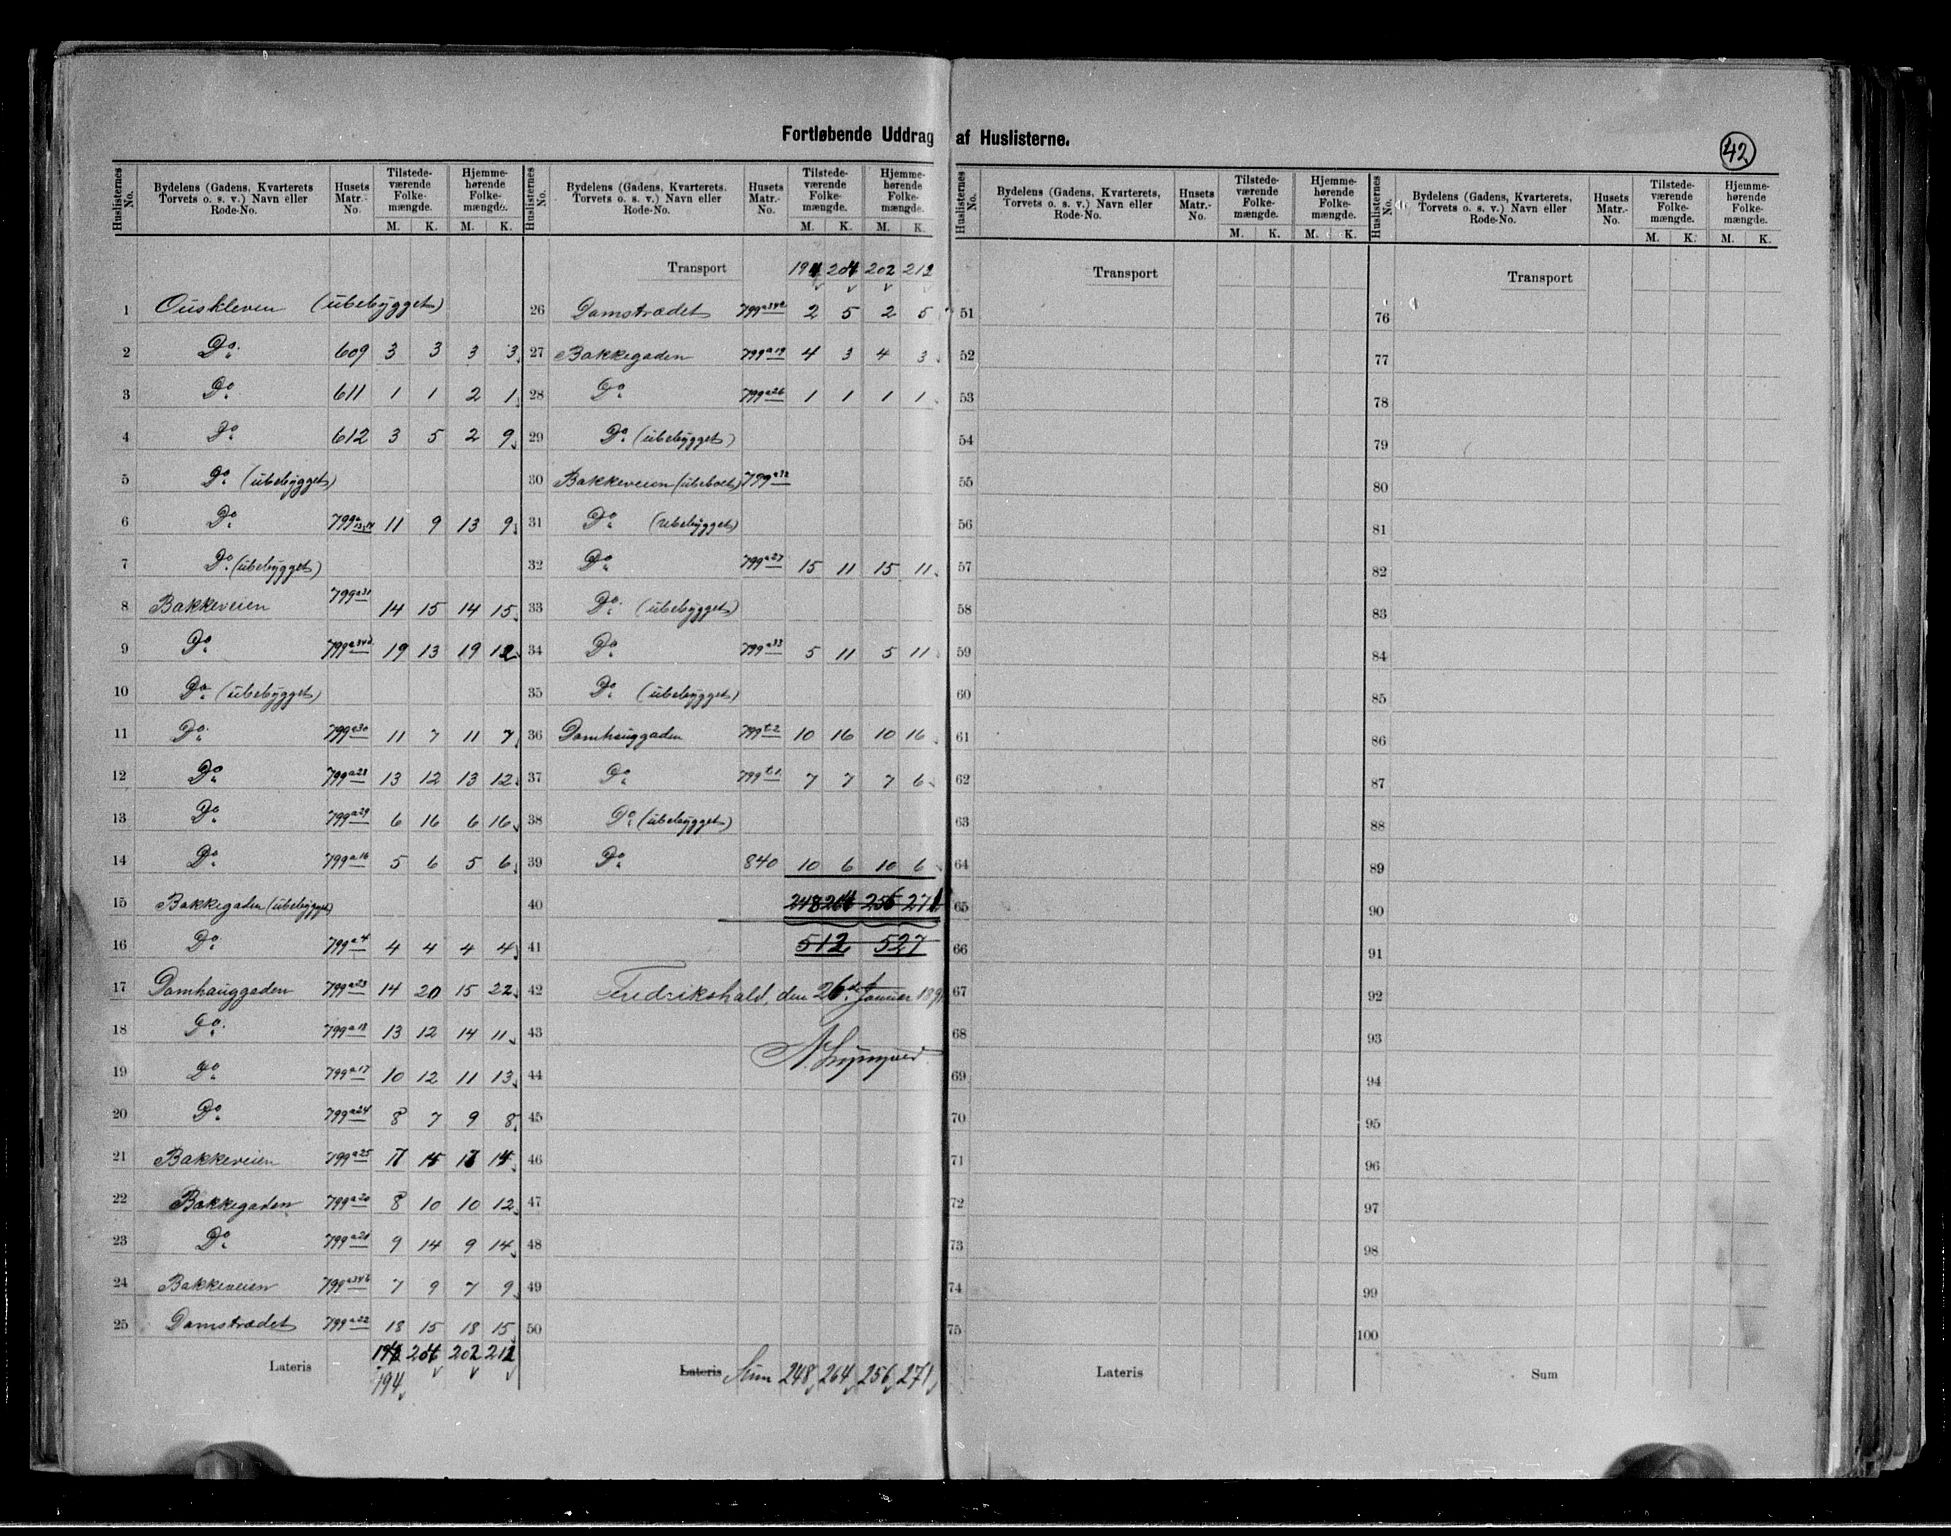 Fortløbende Uddrag af Huslisterne.
42
Huslisternes No. Bydelens (Gadens, Kvarterets Torvets o. s. v.) Navn eller Rode-No. Husets Matr.-No. Tilstedeværende Folkemængde. M. K. Hjemmehørende Folkemængde. M. K.
1 Ouskleven (ubebygget)
2 Do. 609 3 3 3 3
3 Do. 611 1 1 2 1
4 Do. 612 3 5 2 9
5 Do. (ubebygget)
6 Do. 799a 13,14 11 9 13 9
7 Do. (ubebygget)
8 Bakkeveien 799a31 14 15 14 15
9 Do. 799a34d 19 13 19 12
10 Do. (ubebygget)
11 Do. 799a30 11 7 11 7
12 Do. 799a28 13 12 13 12
13 Do. 799a29 6 16 6 16
14 Do. 799a16 5 6 5 6
15 Bakkegaden (ubebygget)
16 Do. 799a4 4 4 4 4
17 Damhauggaden 799a23 14 20 15 22
18 Do. 799a18 13 12 14 11
19 Do. 799a17 10 12 11 13
20 Do. 799a24 8 7 9 8
21 Bakkeveien 799a25
22 Bakkegaden 799a20 8 10 10 12
23 Do. 799a21 9 14 9 14
24 Bakkeveien 799a34b 7 9 7 9
25 Damstrædet 799a22 18 15 18 15
Lateris 204 202 212
194
Huslisternes No. Bydelens (Gadens, Kvarterets. Torvets o. s. v.) Navn eller Rode-No. Husets Matr.-No. Tilstedeværende Folkemængde. M. K. Hjemmehørende Folkemængde. M. K.
Transport 194 204 202 212
26 Damstrædet 799a34c 2 5 2 5
27 Bakkegaden 799a19 4 3 4 3
28 Do. 799a26 1 1 1 1
29 Do. (ubebygget)
30 Bakkeveien (ubeboet) 799a32
31 Do. (ubebygget)
32 Do. 799a27 15 11 15 11
33 Do. (ubebygget)
34 Do. 799a33 5 11 5 11
35 Do. (ubebygget)
36 Damhauggaden 799t2 10 16 10 16
37 Do. 799t1 7 7 7 6
38 Do. (ubebygget)
39 Do. 840 10 6 10 6
40 248 264 256 271
41 512 527
42 Fredrikshald, den 26de Januar 1891
43
44
45
46
47
48
49
50
Lateris Sum 248 264 256 271
Huslisternes No. Bydelens (Gadens, Kvarterets, Torvets o. s. v.) Navn eller Rode-No. Husets Matr.-No. Tilstedeværende Folkemængde. M. K. Hjemmehørende Folkemængde. M. K.
Transport
51
52
53
54
55
56
57
58
59
60
61
62
63
64
65
66
67
68
69
70
71
72
73
74
75
Lateris
Huslisternes No. Bydelens (Gadens, Kvarterets, Torvets o. s. v.) Navn eller Rode-No. Husets Matr.-No. Tilstedeværende Folkemængde. M. K. Hjemmehørende Folkemængde. M. K.
Transport
76
77
78
79
80
81
82
83
84
85
86
87
88
89
90
91
92
93
94
95
96
97
98
99
100
Sum